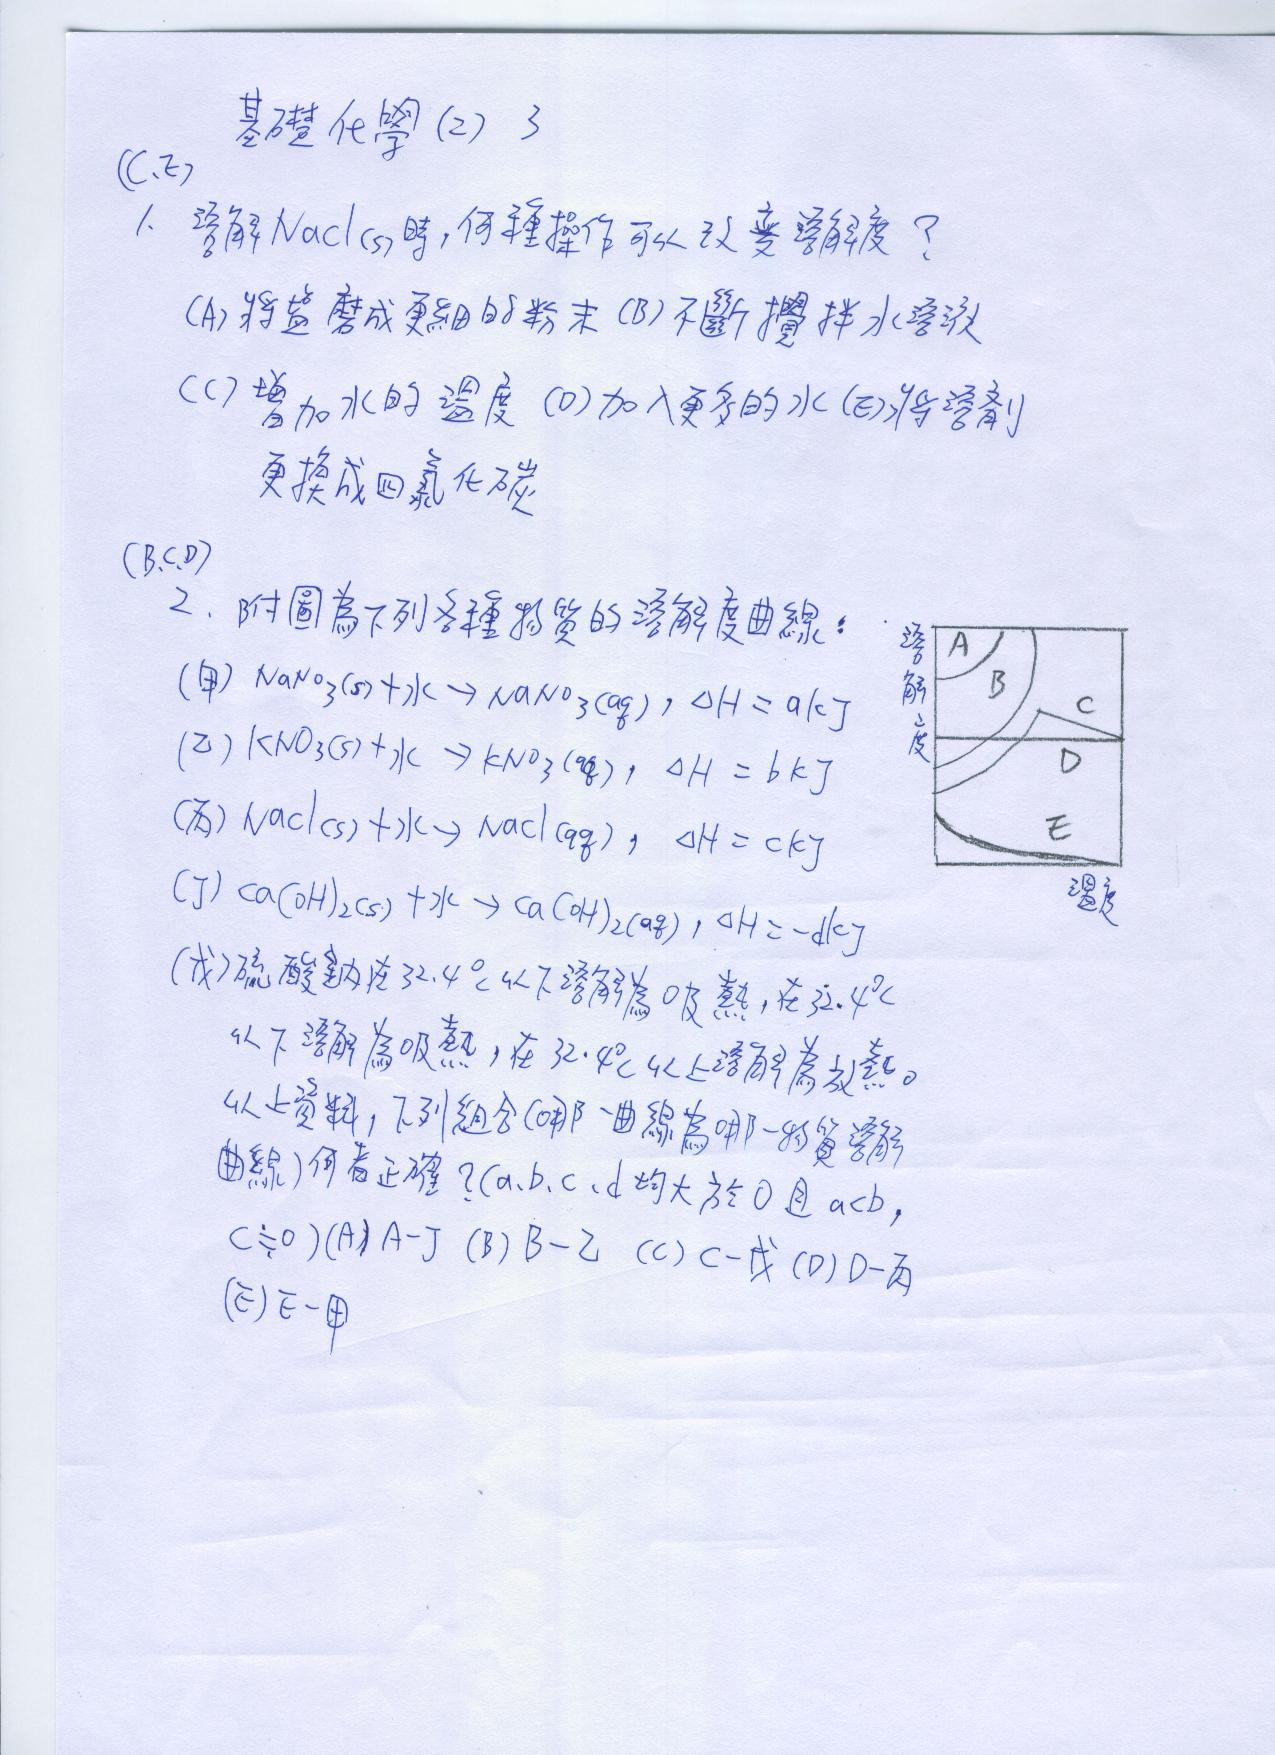 基礎化學(2) 3
(C、E)
1. 溶解NaCl(s)時,何種操作可以改變溶解度?
(A)將鹽磨成更細的粉末 (B)不斷攪拌水溶液
(C)增加水的溫度 (D)加入更多的水 (E)將溶劑
更換成四氯化碳
(B.C.D)
2. 附圖為下列各種物質的溶解度曲線:
(甲) NaNO3(s)+水→NaNO3(aq), △H=akJ
(乙) KNO3(s)+水→KNO3(aq), △H=bkJ
(丙) NaCl(s)+水→NaCl(aq), △H=ckJ
(丁) Ca(OH)2(s)+水→Ca(OH)2(aq), △H=-dkJ
(戊)硫酸鈉在32.4℃以下溶解為吸熱,在32.4℃
以下溶解為吸熱,在32.4℃以上溶解為放熱。
以上資料,下列組合(哪一曲線為哪一物質溶解
曲線)何者正確?(a、b、c、d均大於0且a<b,
c≒0)(A) A-丁 (B) B-乙 (C) C-戊 (D) D-丙
(E) E-甲
溶解度
A
B
C
D
E
溫度